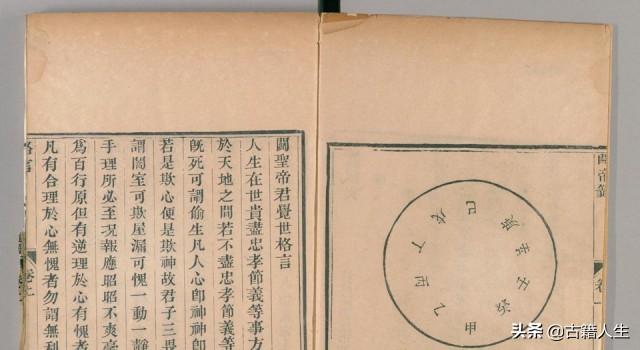 關帝籤
卷一
甲
乙
丙
丁
戊
己
庚
辛
壬
癸
關聖帝君覺世格言
人生在世貴盡忠孝節義等事方
於天地之間若不盡忠孝節義等
既死可謂偷生凡人心即神神即
若是欺心便是欺神故君子三畏
謂闇室可欺屋漏可愧一動一靜
手理所必至况報應昭昭不爽毫
為百行原但有逆理於心有愧者
凡有合理於心無愧者勿謂無利
格言
头条 @古籍人生